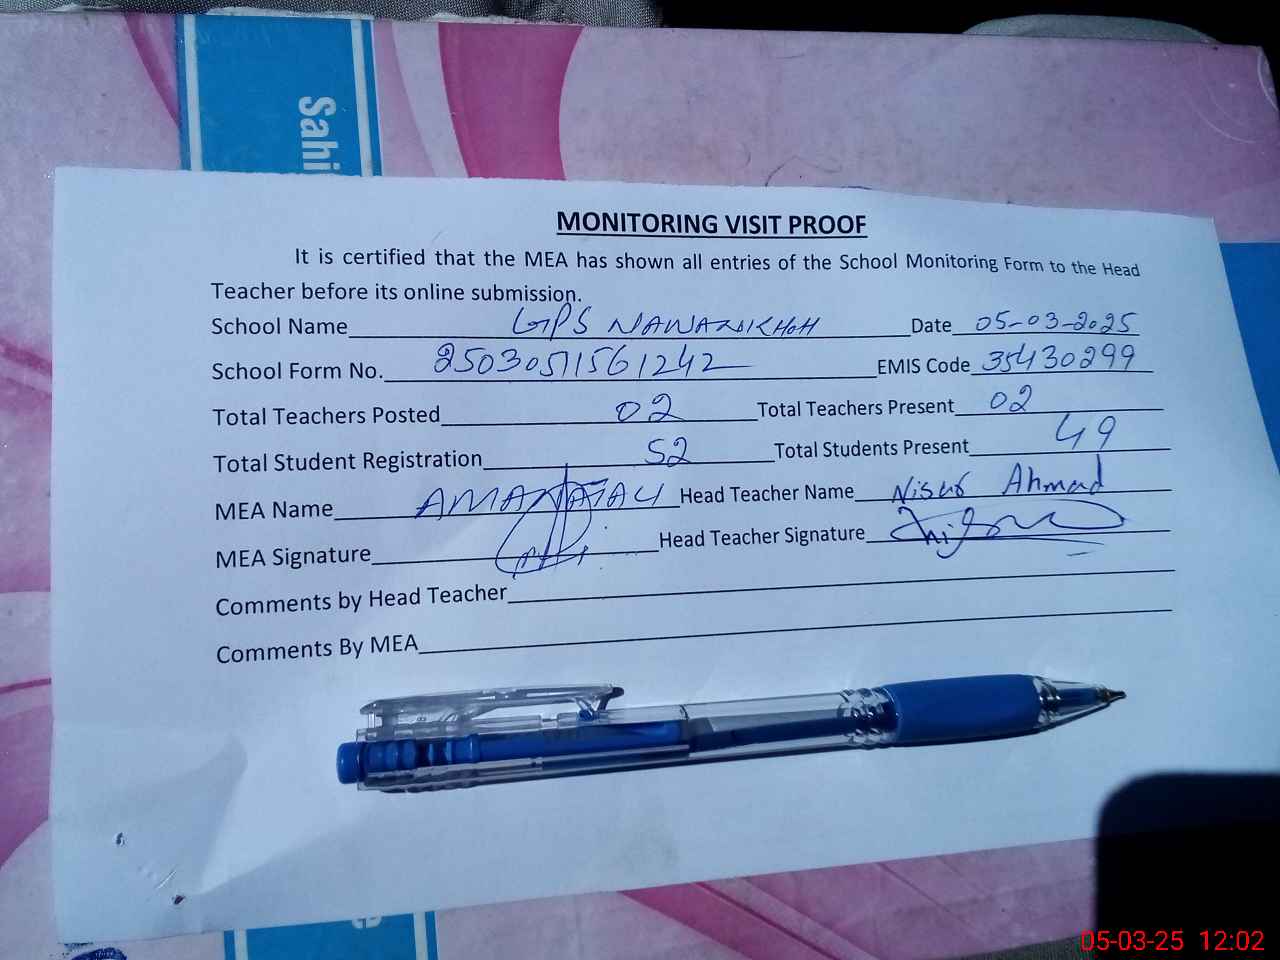 Sahi
MONITORING VISIT PROOF
It is certified that the MEA has shown all entries of the School Monitoring Form to the Head
Teacher before its online submission.
School Name GPS NAWANKHOH Date 05-03-2025
School Form No. 25030511561242 EMIS Code 35430299
Total Teachers Posted 02 Total Teachers Present 02
Total Student Registration 52 Total Students Present 49
MEA Name AMANATALI Head Teacher Name Ahmad
MEA Signature Head Teacher Signature
Comments by Head Teacher
Comments By MEA
05-03-25 12:02